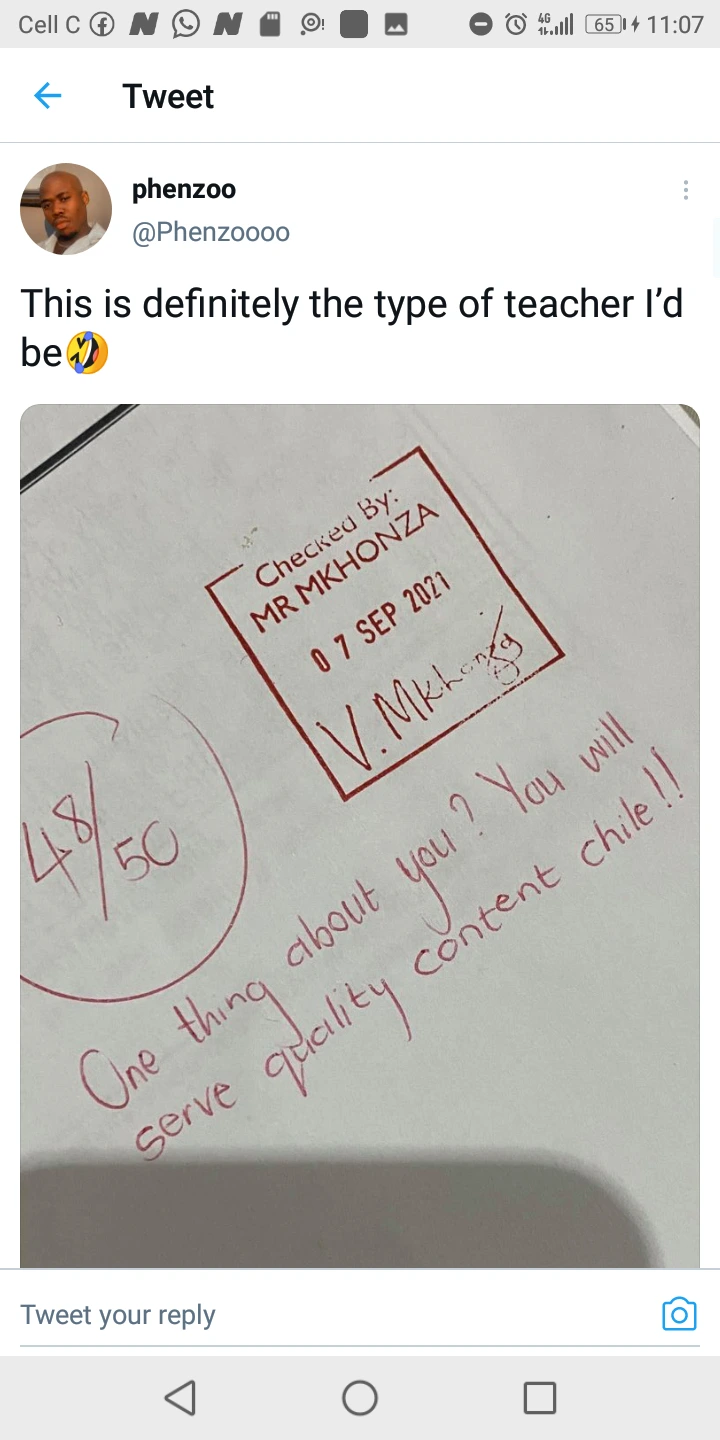 Cell C 4G 65 11:07
Tweet
phenzoo
@Phenzoooo
This is definitely the type of teacher I’d
be🤣
Checked By:
MR MKHONZA
07 SEP 2021
V.Mkhonza
48/50
One thing about you? You will
serve quality content chile!!
Tweet your reply